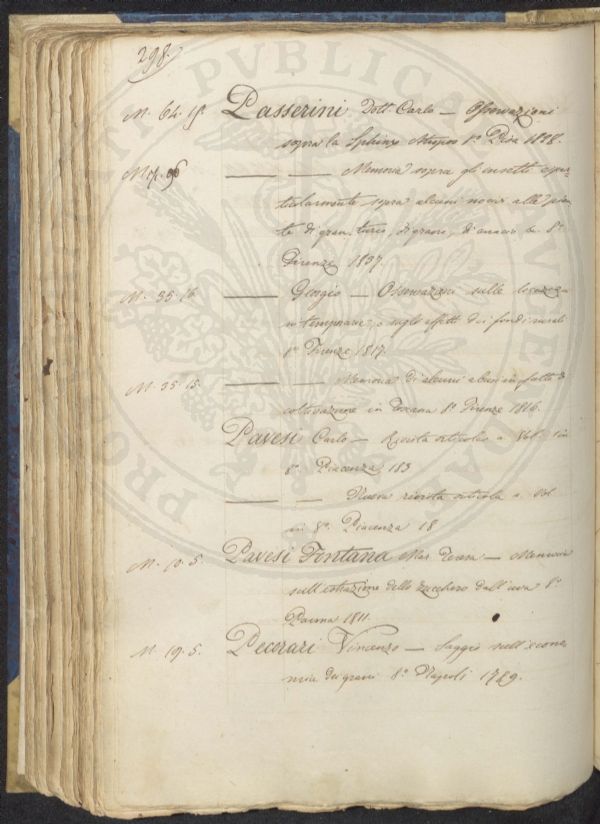 298.
M. 64. 15. Passerini Dott. Carlo — Osservazioni
sopra la Sphinx Atropos 8°. Pisa 1828.
M. 96 — — Memoria sopra gli insetti e par-
ticolarmente sopra alcuni nocivi alle pian-
te di gran turco, di grano, di &c. 8°.
Firenze 1837.
M. 35. 16. — Giorgio — Osservazioni sulle locazioni
temporanee, e sugli effetti dei fondi rurali
8°. Firenze 1817.
M. 35. 15. — — Memoria di alcuni abusi in fatto di
coltivazione in Toscana 8°. Firenze 1816.
Pavesi Carlo — Rivista orticola Vol. in
8°. Piacenza 183
— — Nuova rivista orticola Vol
in 8°. Piacenza 18
M. 10. 5. Pavesi Fontana Mar. Teresa — Memoria
sull'estrazione dello zucchero dall'uva 8°.
Parma 1811.
M. 19. 5. Pecorari Vincenzo — Saggio sull'econo-
mia dei grani 8°. Napoli 1789.
PUBLICAE
PROSPERITATI